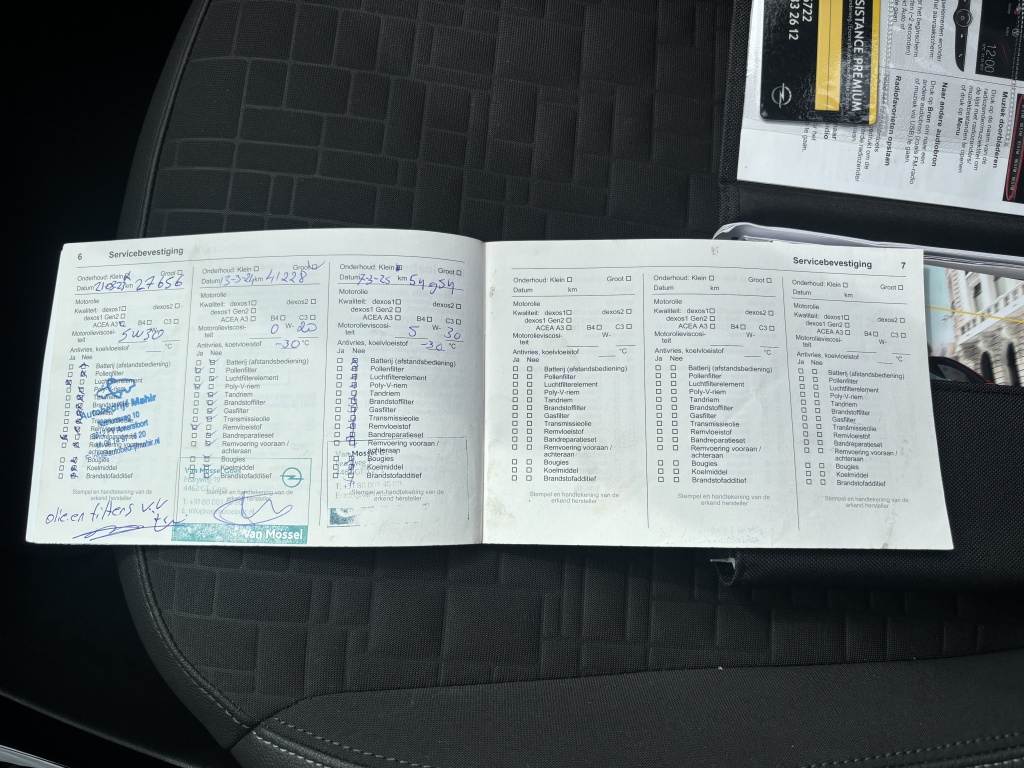 SISTANCE PREMIUM
5722
33 26 12
12:00
Muziek doorbladeren
Druk op de naam van de
of druk op Menu
Naar andere audiobron
Druk op Bron om naar een
andere audiobron (zoals FM-radio
of muziek via USB) te gaan.
Radiofavorieten opslaan
6 Servicebevestiging
Onderhoud: Klein Groot
Datum 21082 km 27656
Motorolie
Kwaliteit: dexos1 dexos2
dexos1 Gen2
ACEA A3 B4 C3
Motorolieviscosi-
teit 5W30
Antivries, koelvloeistof °C
Ja Nee
Batterij (afstandsbediening)
Pollenfilter
Luchtfilterelement
Autobedrijf Mahir
Bougies
Koelmiddel
Brandstofadditief
Stempel en handtekening van de
erkend hersteller
olie en filters V.V
Onderhoud: Klein Groot
Datum 13-3-24 km 41228
Motorolie
Kwaliteit: dexos1 dexos2
dexos1 Gen2
ACEA A3 B4 C3
Motorolieviscosi-
teit 0 W- 20
Antivries, koelvloeistof -30 °C
Ja Nee
Batterij (afstandsbediening)
Pollenfilter
Luchtfilterelement
Poly-V-riem
Tandriem
Brandstoffilter
Gasfilter
Transmissieolie
Remvloeistof
Bandreparatieset
Remvoering vooraan /
achteraan
Bougies
Koelmiddel
Brandstofadditief
Stempel en handtekening van de
erkend hersteller
Van Mossel
Onderhoud: Klein Groot
Datum 7-3-25 km 54954
Motorolie
Kwaliteit: dexos1 dexos2
dexos1 Gen2
ACEA A3 B4 C3
Motorolieviscosi-
teit 5 W- 30
Antivries, koelvloeistof -30 °C
Ja Nee
Batterij (afstandsbediening)
Pollenfilter
Luchtfilterelement
Poly-V-riem
Tandriem
Brandstoffilter
Gasfilter
Transmissieolie
Remvloeistof
Bandreparatieset
Remvoering vooraan /
achteraan
Bougies
Koelmiddel
Brandstofadditief
Stempel en handtekening van de
erkend hersteller
Servicebevestiging 7
Onderhoud: Klein Groot
Datum km
Motorolie
Kwaliteit: dexos1 dexos2
dexos1 Gen2
ACEA A3 B4 C3
Motorolieviscosi- W-
teit
Antivries, koelvloeistof °C
Ja Nee
Batterij (afstandsbediening)
Pollenfilter
Luchtfilterelement
Poly-V-riem
Tandriem
Brandstoffilter
Gasfilter
Transmissieolie
Remvloeistof
Bandreparatieset
Remvoering vooraan /
achteraan
Bougies
Koelmiddel
Brandstofadditief
Stempel en handtekening van de
erkend hersteller
Onderhoud: Klein Groot
Datum km
Motorolie
Kwaliteit: dexos1 dexos2
dexos1 Gen2
ACEA A3 B4 C3
Motorolieviscosi- W-
teit
Antivries, koelvloeistof °C
Ja Nee
Batterij (afstandsbediening)
Pollenfilter
Luchtfilterelement
Poly-V-riem
Tandriem
Brandstoffilter
Gasfilter
Transmissieolie
Remvloeistof
Bandreparatieset
Remvoering vooraan /
achteraan
Bougies
Koelmiddel
Brandstofadditief
Stempel en handtekening van de
erkend hersteller
Onderhoud: Klein Groot
Datum km
Motorolie
Kwaliteit: dexos1 dexos2
dexos1 Gen2
ACEA A3 B4 C3
Motorolieviscosi- W-
teit
Antivries, koelvloeistof °C
Ja Nee
Batterij (afstandsbediening)
Pollenfilter
Luchtfilterelement
Poly-V-riem
Tandriem
Brandstoffilter
Gasfilter
Transmissieolie
Remvloeistof
Bandreparatieset
Remvoering vooraan /
achteraan
Bougies
Koelmiddel
Brandstofadditief
Stempel en handtekening van de
erkend hersteller